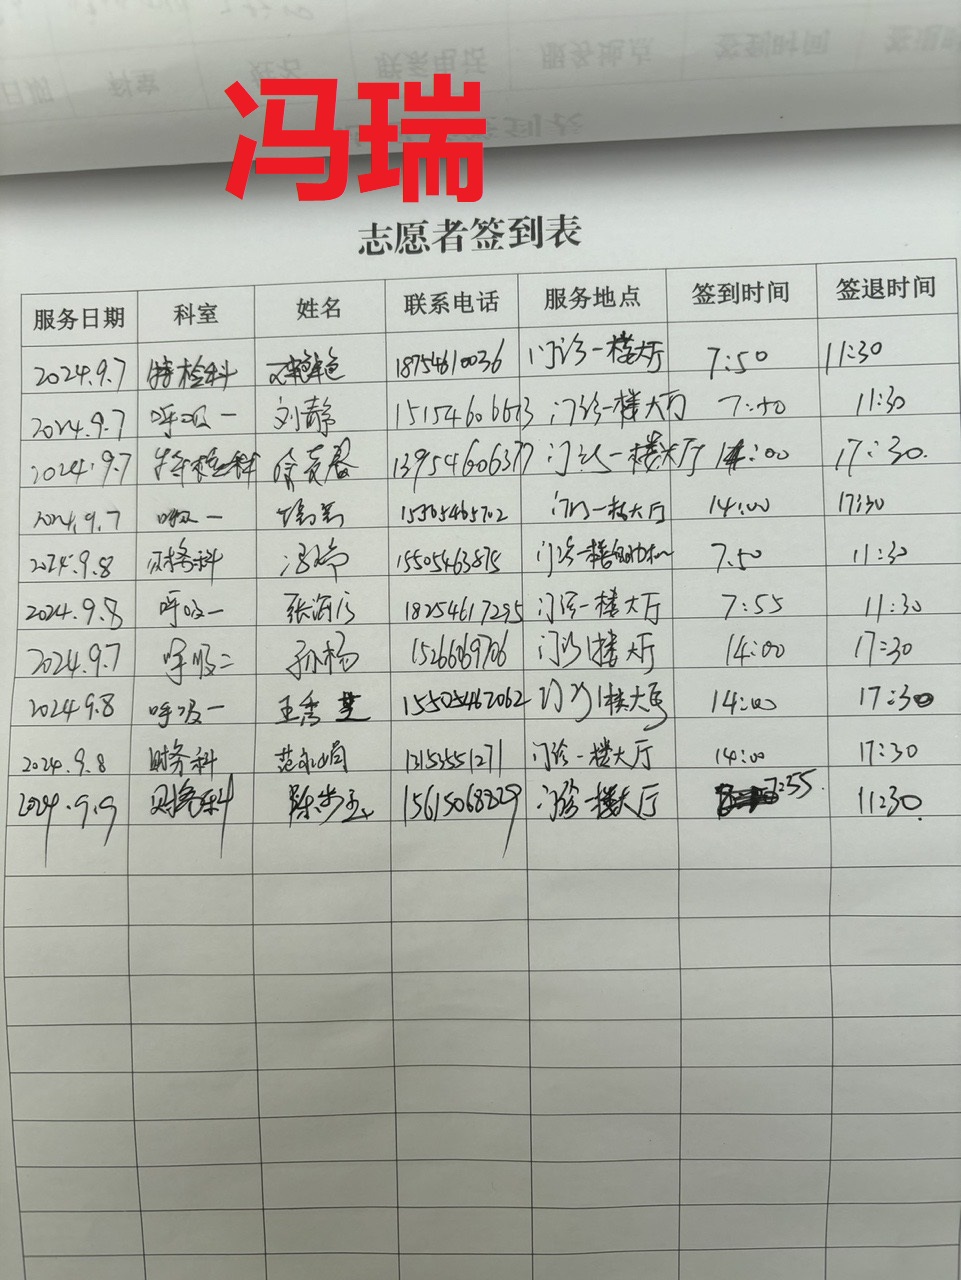 冯瑞
志愿者签到表
服务日期 科室 姓名 联系电话 服务地点 签到时间 签退时间
2024.9.7 特检科 18754610036 门诊一楼大厅 7:50 11:30
2024.9.7 呼吸一 刘静 门诊一楼大厅 7:50 11:30
2024.9.7 特检科 13954606377 门诊一楼大厅 14:00 17:30.
2024.9.7 呼吸一 15305465702 门诊一楼大厅 14:00 17:30
2024.9.8 财务科 冯瑞 15505463875 门诊一楼自助机 7:50 11:30
2024.9.8 呼吸一 18254617295 门诊一楼大厅 7:55 11:30
2024.9.7 呼吸二 孙杨 门诊1楼大厅 14:00 17:30
2024.9.8 呼吸一 王秀芝 15505462062 门诊1楼大厅 14:00 17:30
2024.9.8 财务科 13153551271 门诊一楼大厅 14:00 17:30
2024.9.9 财务科 15615068229 门诊一楼大厅 7:55. 11:30.